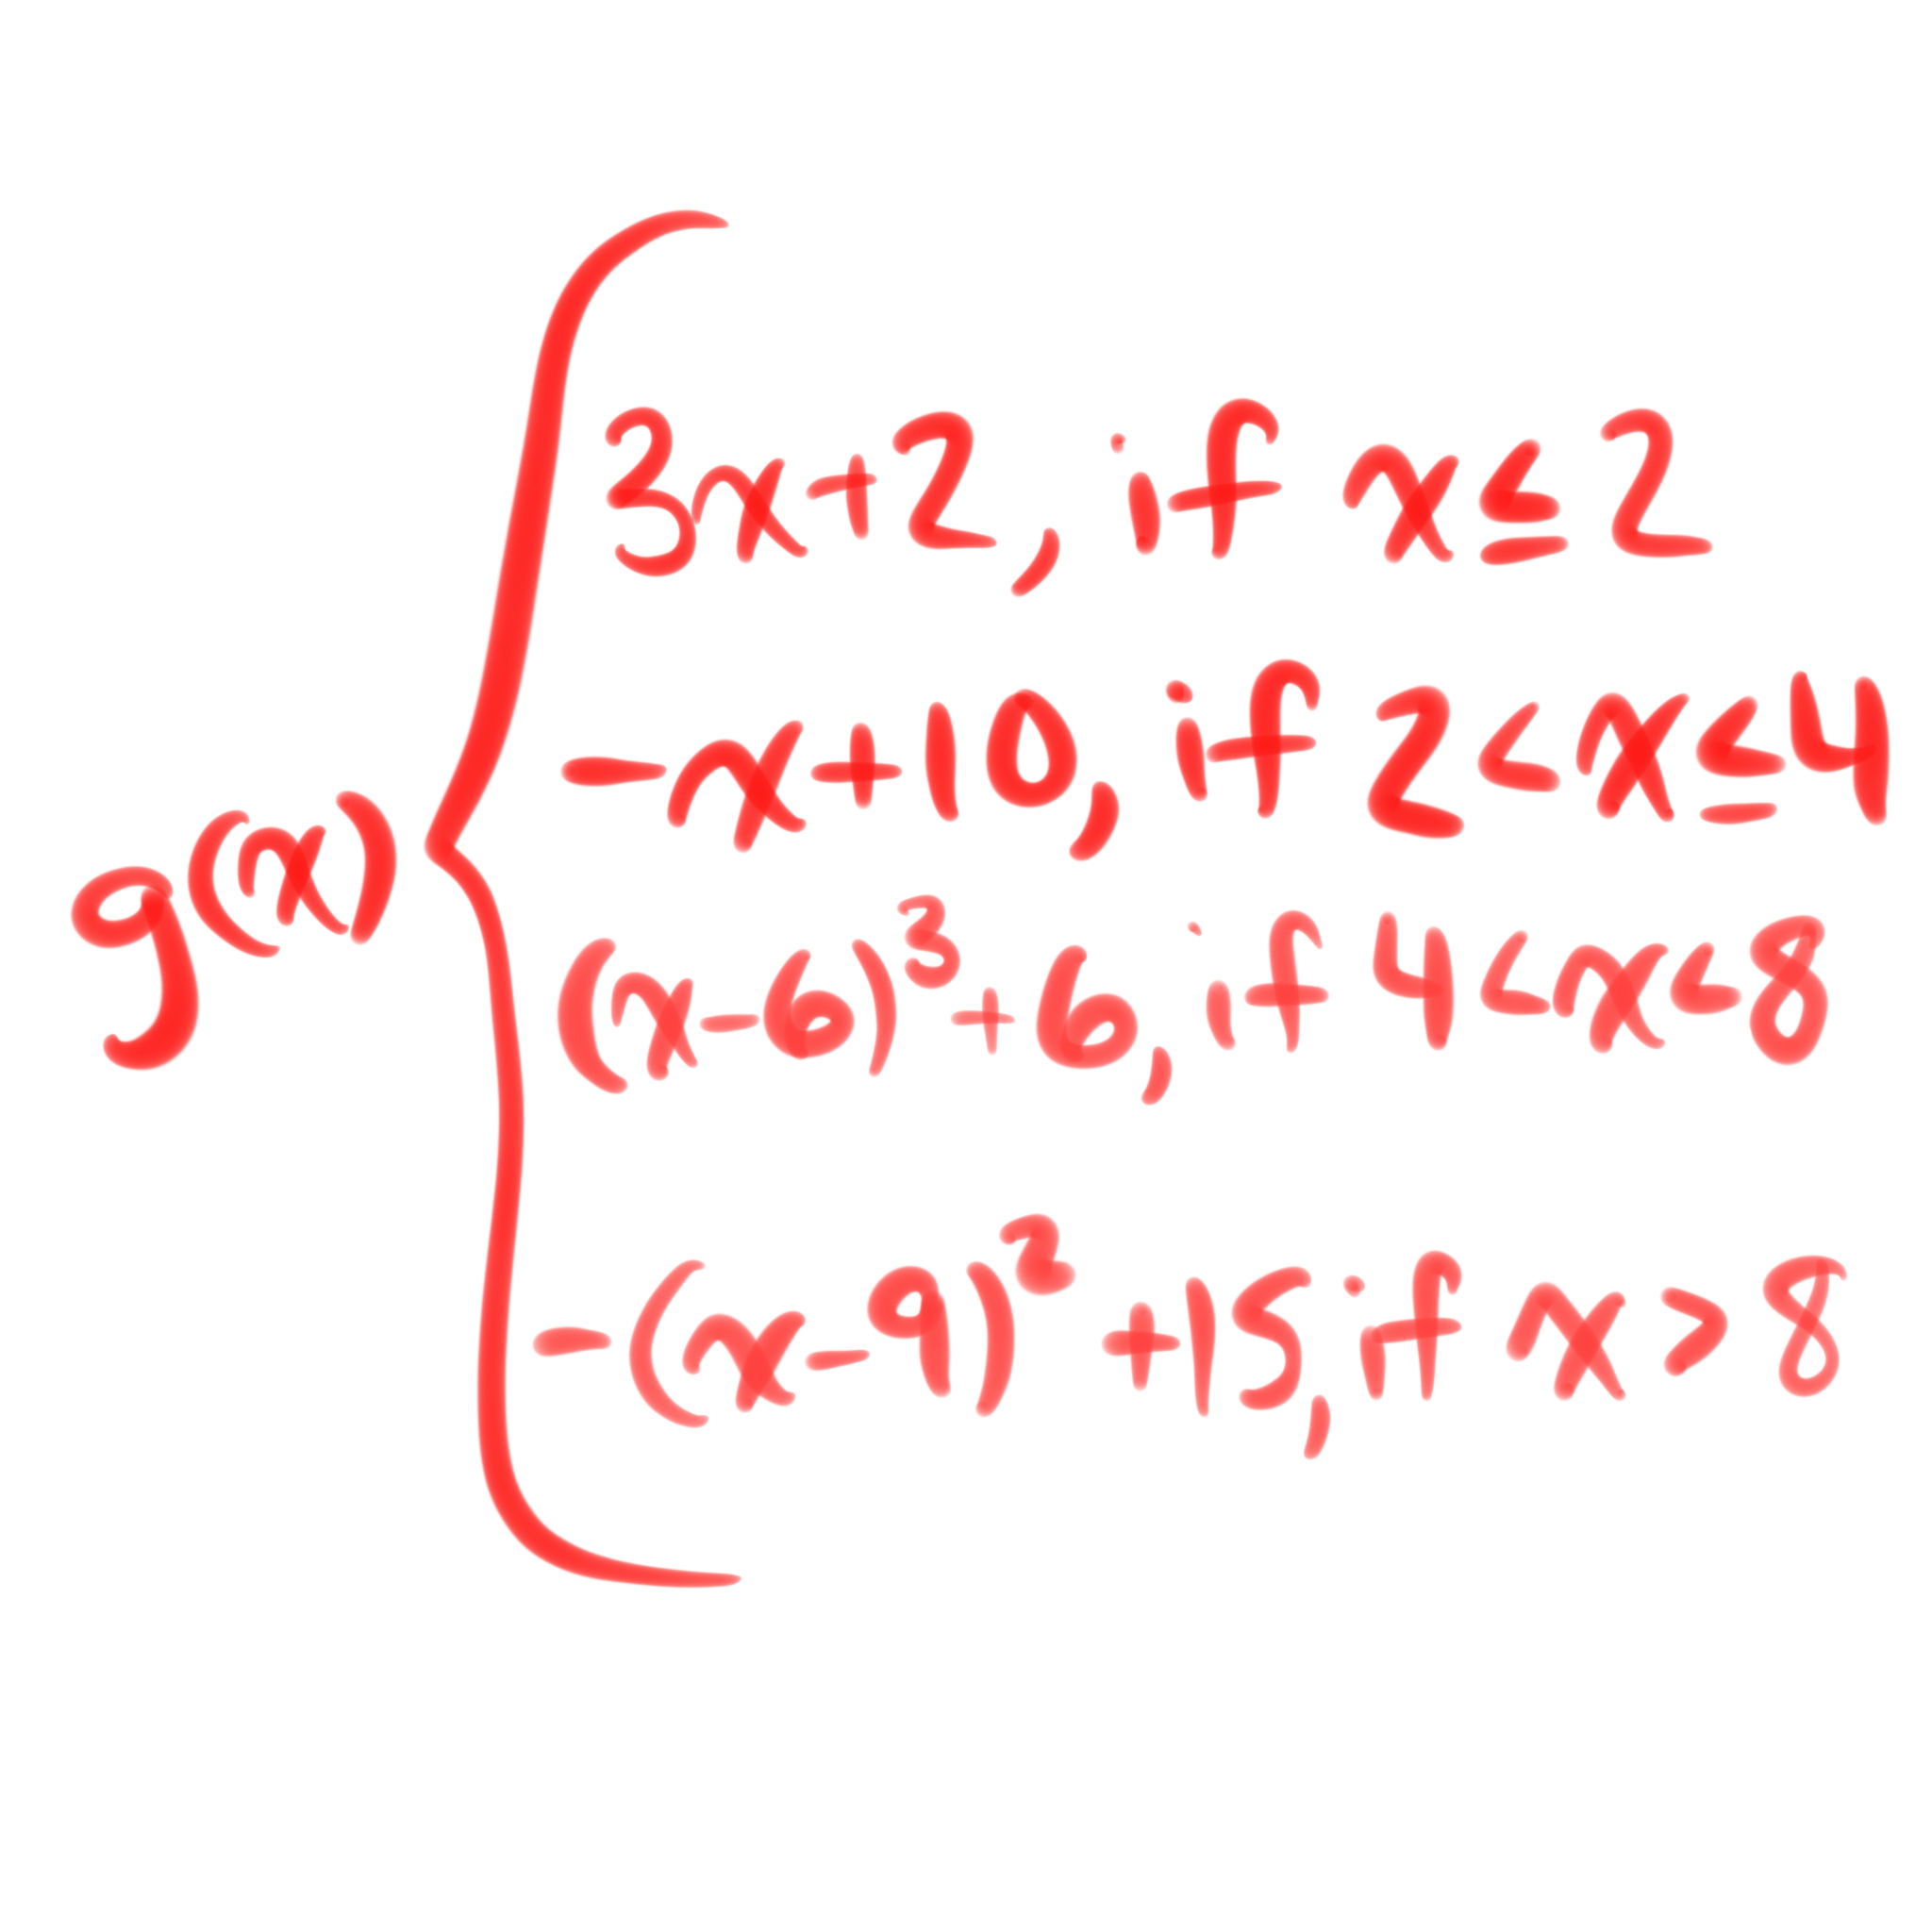 3x+2, if x≤2
-x+10, if 2<x≤4
g(x)
(x-6)³+6, if 4<x<8
-(x-9)²+15, if x>8